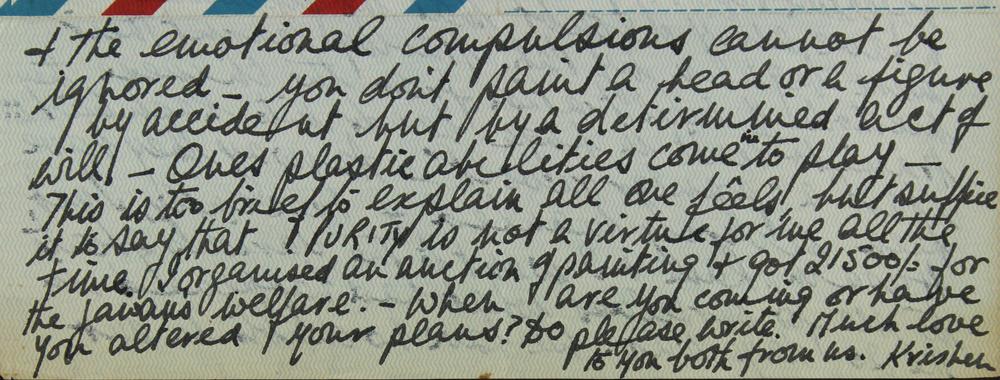 + the emotional compulsions cannot be
ignored – you don't paint a head or a figure
by accident but by a determined act of
will. – Ones plastic abilities come into play –
This is too brief to explain all one feels, but suffice
it to say that PURITY is not a virtue for me all the
time. I organised an auction of painting + got 21500/- for
the jawans welfare. – When are you coming or have
you altered your plans? Do please write. Much love
to you both from us. Krishen